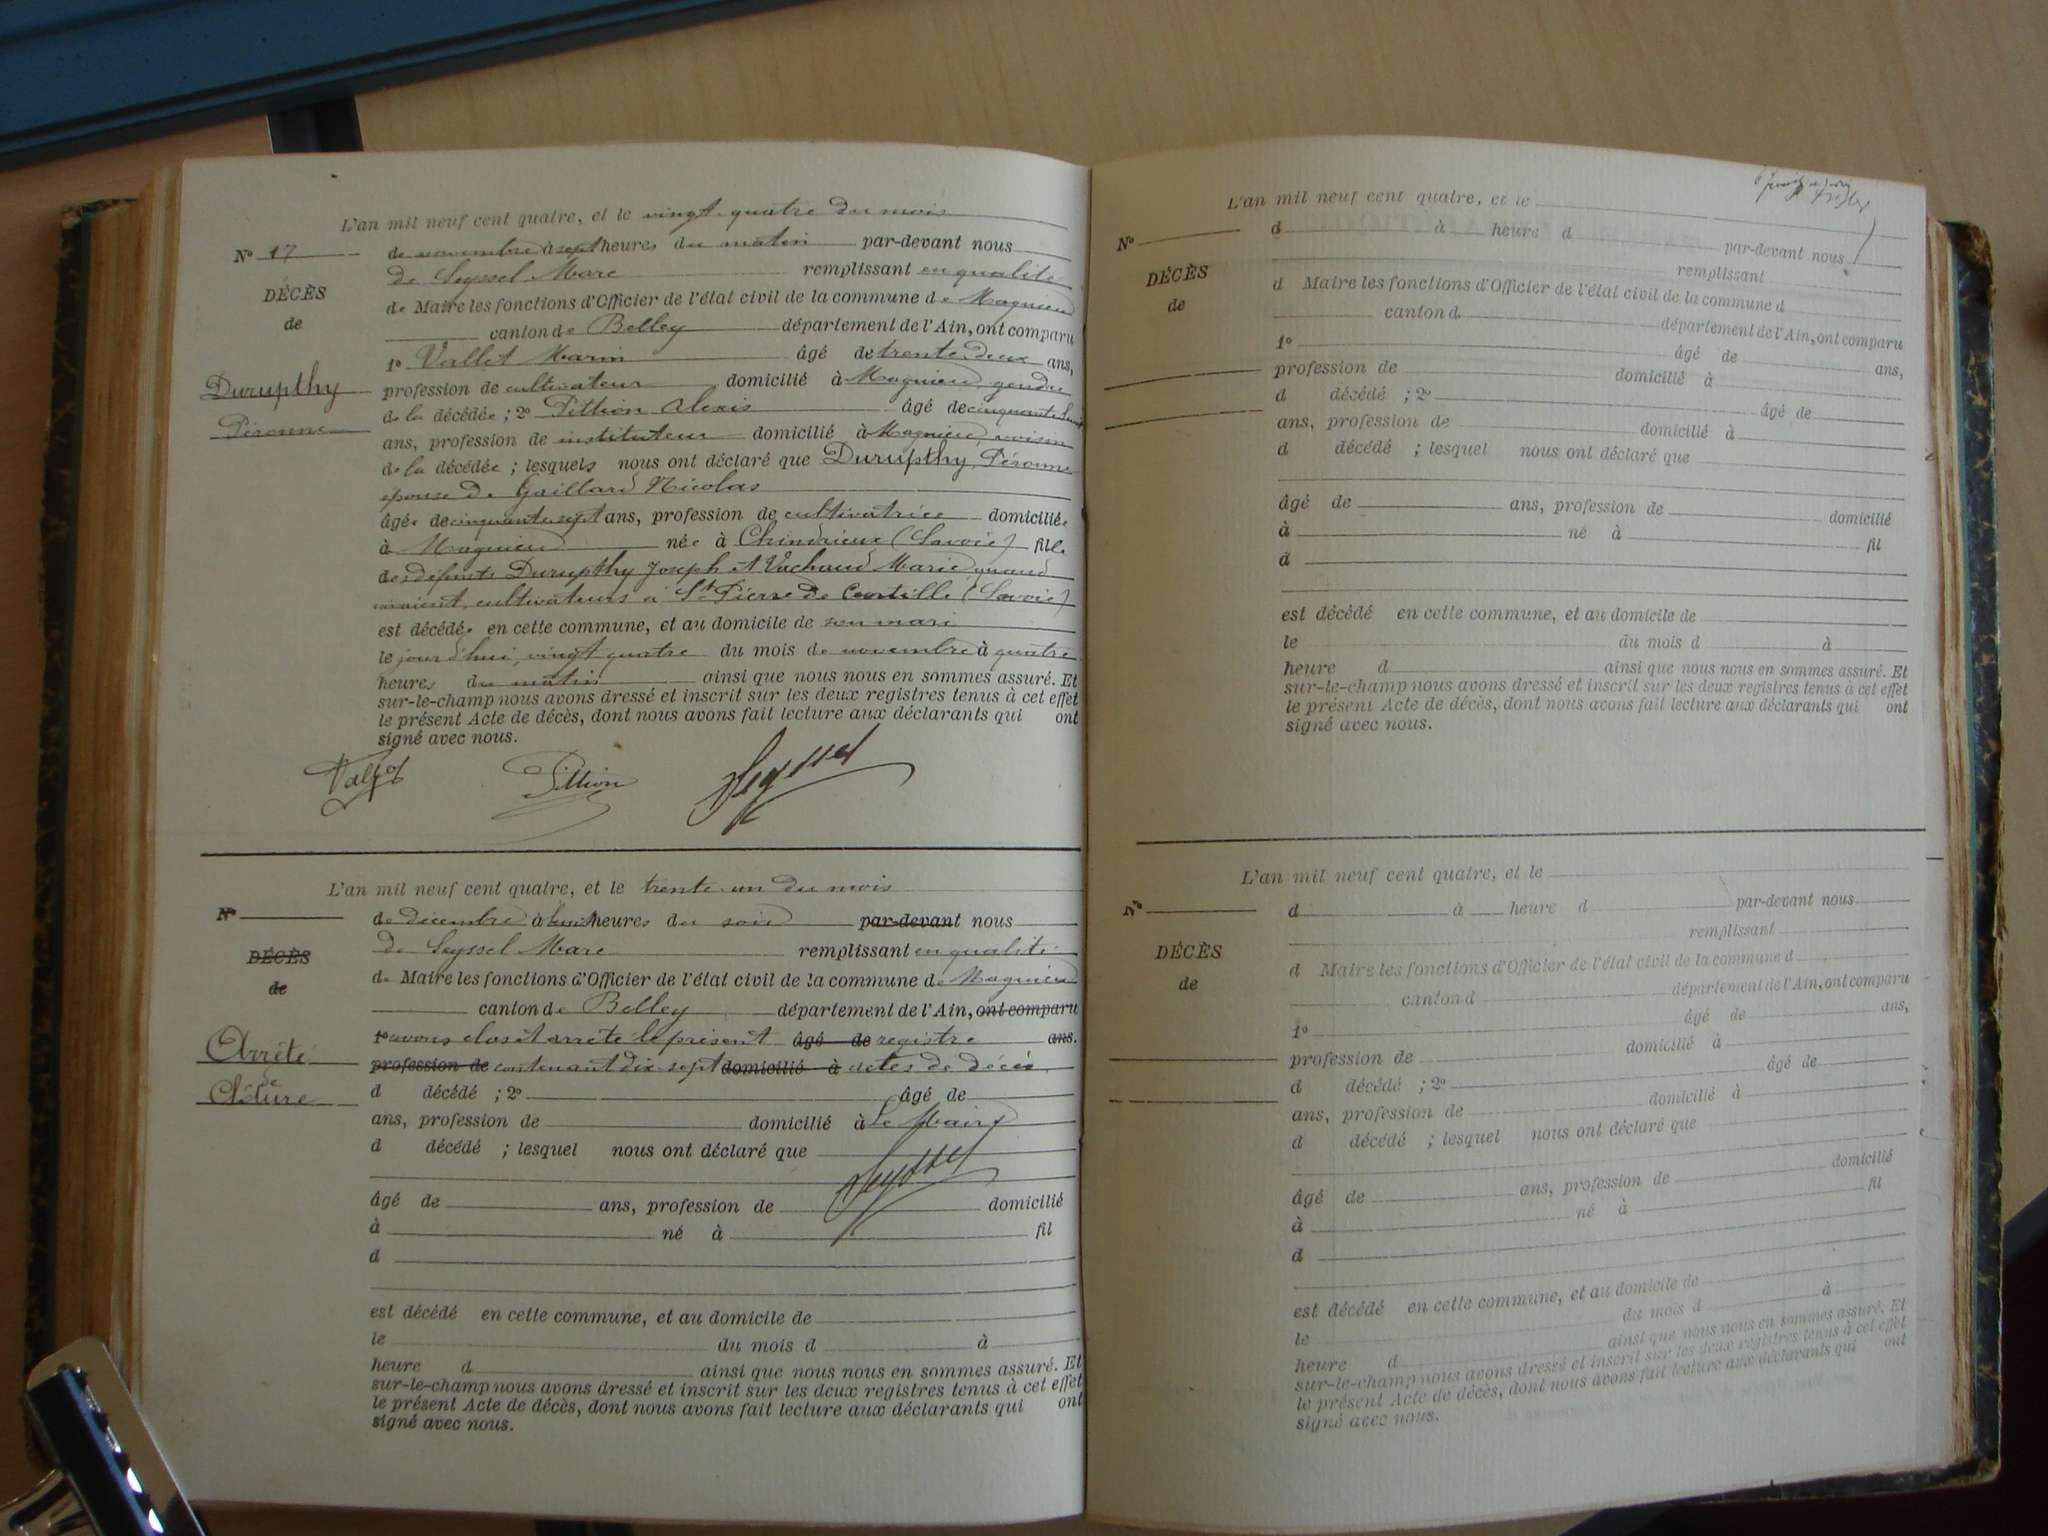 L'an mil neuf cent quatre, et le vingt-quatre du mois
N° 17
de novembre à sept heures du matin par-devant nous
de Seyssel Marc remplissant en qualité
DÉCÈS
de Maire les fonctions d'Officier de l'état civil de la commune de Magnieu
de
canton de Belley département de l'Ain, ont comparu
1° Vallet Marin âgé de trente-deux ans,
Durupthy
profession de cultivateur domicilié à Magnieu, gendre
de la décédée ; 2° Pittion Alexis âgé de cinquante
Péronne
ans, profession de instituteur domicilié à Magnieu, voisin
de la décédée ; lesquels nous ont déclaré que Durupthy Péronne
épouse de Gaillard Nicolas
âgée de cinquante-sept ans, profession de cultivatrice domiciliée
à Magnieu née à Chindrieux (Savoie) fille
des défunts Durupthy Joseph et Vachaud Marie quand
vivaient, cultivateurs à St Pierre de Curtille (Savoie)
est décédée en cette commune, et au domicile de son mari
le jourd'hui, vingt quatre du mois de novembre à quatre
heures du matin ainsi que nous nous en sommes assuré. Et
sur-le-champ nous avons dressé et inscrit sur les deux registres tenus à cet effet
le présent Acte de décès, dont nous avons fait lecture aux déclarants qui ont
signé avec nous.
Vallet Pittion Seyssel
L'an mil neuf cent quatre, et le trente-un du mois
N°
de décembre à heures du soir par-devant nous
de Seyssel Marc remplissant en qualité
DÉCÈS
de Maire les fonctions d'Officier de l'état civil de la commune de Magnieu
de
canton de Belley département de l'Ain, ont comparu
1° avons clos et arrêté le présent âgé de registre ans.
Arrêté
profession de contenant dix-sept domicilié à actes de décès
de
d décédé ; 2° âgé de
Clôture
ans, profession de domicilié à Le Maire
d décédé ; lesquel nous ont déclaré que
Seyssel
âgé de ans, profession de domicilié
à né à fil
d
est décédé en cette commune, et au domicile de
le du mois d à
heure d ainsi que nous nous en sommes assuré. Et
sur-le-champ nous avons dressé et inscrit sur les deux registres tenus à cet effet
le présent Acte de décès, dont nous avons fait lecture aux déclarants qui ont
signé avec nous.
L'an mil neuf cent quatre, et le
N°
d à heure d par-devant nous
remplissant
DÉCÈS
d Maire les fonctions d'Officier de l'état civil de la commune d
de
canton d département de l'Ain, ont comparu
1° âgé de ans,
profession de domicilié à
d décédé ; 2° âgé de
ans, profession de domicilié à
d décédé ; lesquel nous ont déclaré que
âgé de ans, profession de domicilié
à né à fil
d
est décédé en cette commune, et au domicile de
le du mois d à
heure d ainsi que nous nous en sommes assuré. Et
sur-le-champ nous avons dressé et inscrit sur les deux registres tenus à cet effet
le présent Acte de décès, dont nous avons fait lecture aux déclarants qui ont
signé avec nous.
L'an mil neuf cent quatre, et le
N°
d à heure d par-devant nous
remplissant
DÉCÈS
d Maire les fonctions d'Officier de l'état civil de la commune d
de
canton d département de l'Ain, ont comparu
1° âgé de ans,
profession de domicilié à
d décédé ; 2° âgé de
ans, profession de domicilié à
d décédé ; lesquel nous ont déclaré que
âgé de ans, profession de domicilié
à né à fil
d
est décédé en cette commune, et au domicile de
le du mois d à
heure d ainsi que nous nous en sommes assuré. Et
sur-le-champ nous avons dressé et inscrit sur les deux registres tenus à cet effet
le présent Acte de décès, dont nous avons fait lecture aux déclarants qui ont
signé avec nous.